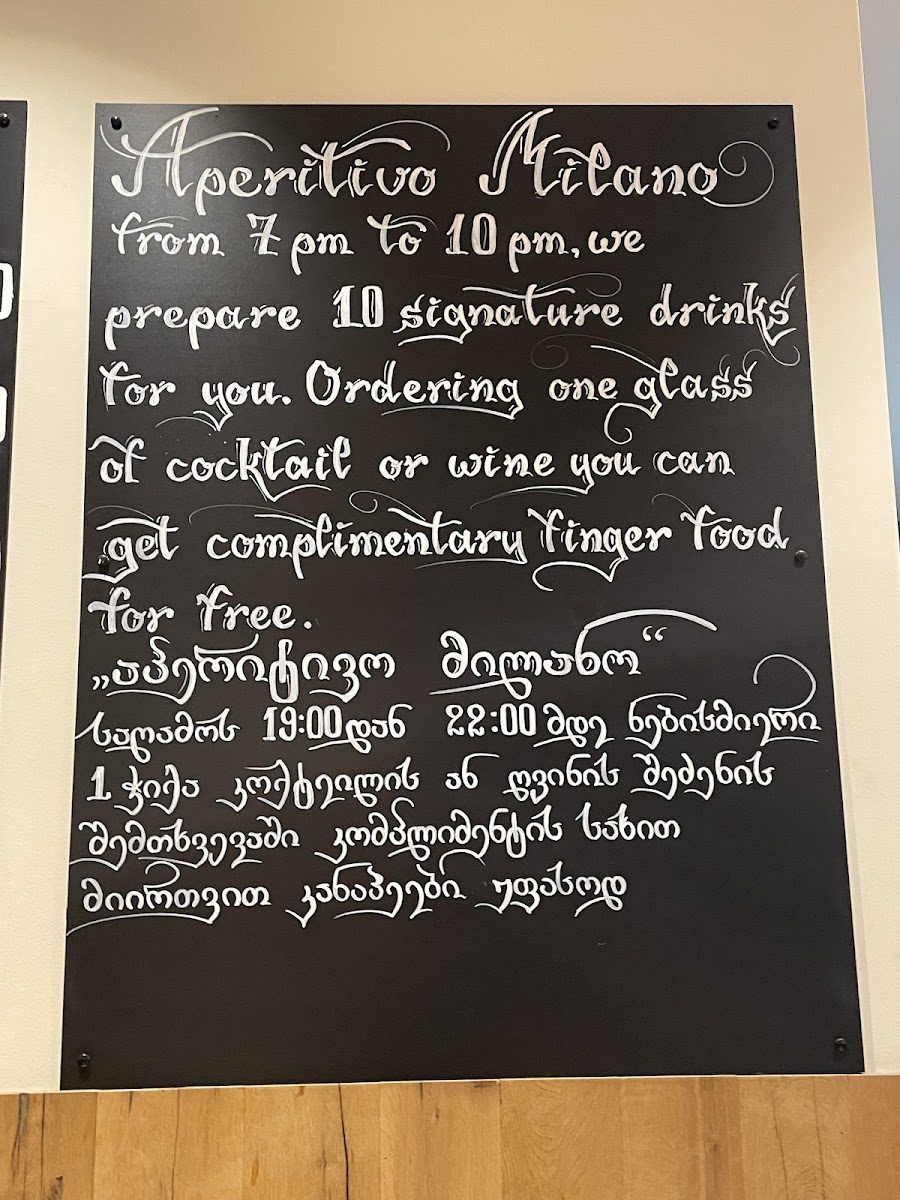 Aperitivo Milano
from 7 pm to 10 pm, we
prepare 10 signature drinks
for you. Ordering one glass
of cocktail or wine you can
get complimentary finger food
for free.
„აპერიტივო მილანო“
საღამოს 19:00დან 22:00მდე ნებისმიერი
1 ჭიქა კოქტეილის ან ღვინის შეძენის
შემთხვევაში კომპლიმენტის სახით
მიირთვით კანაპეები უფასოდ